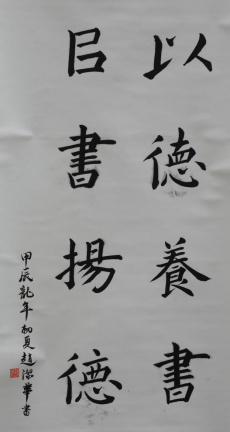 以德養書
㠯書揚德
甲辰龍年初夏趙潔華書